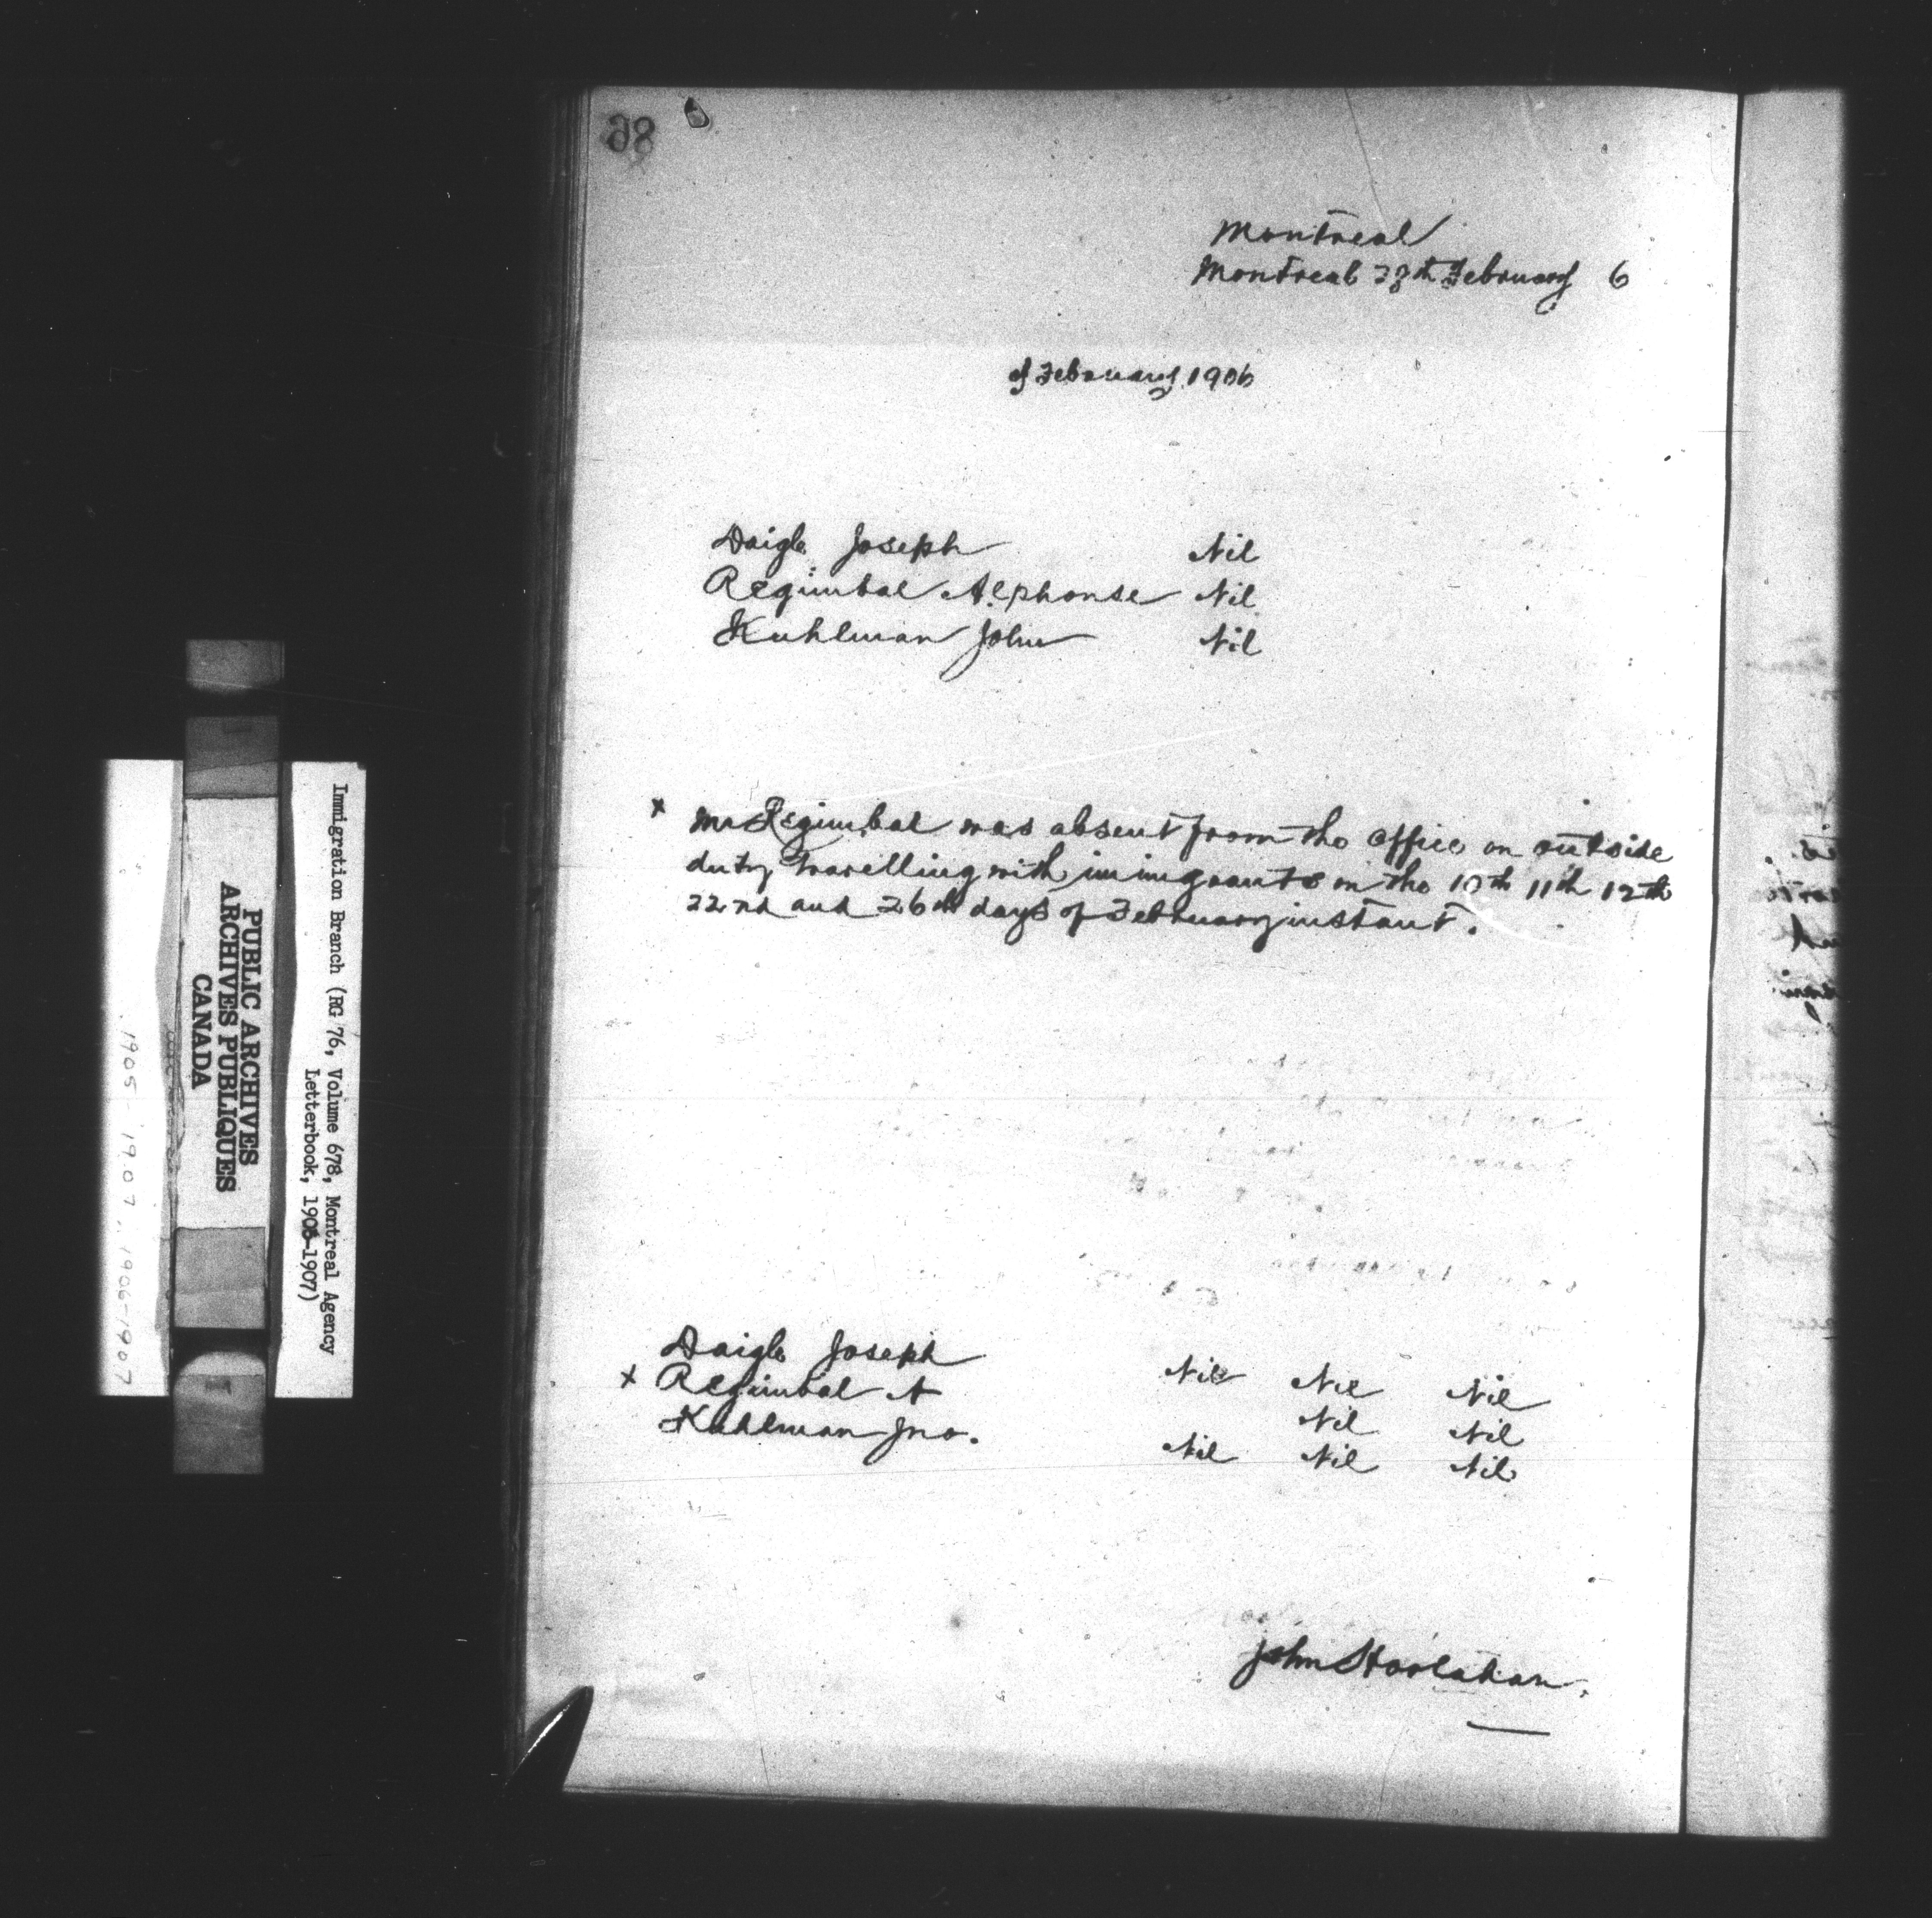 68
Montreal
Montreal 28th February 6
of February 1906
Daigle Joseph Nil
Regimbal Alphonse Nil
Kuhlman John Nil
x Mr Regimbal was absent from the office on outside
duty travelling with immigrants on the 10th 11th 12th
22nd and 26th days of February instant.
Daigle Joseph Nil Nil Nil
x Regimbal A Nil Nil
Kuhlman Jno. Nil Nil Nil
John Hoolahan.
Immigration Branch (RG 76, Volume 678, Montreal Agency
Letterbook, 1906-1907)
PUBLIC ARCHIVES
ARCHIVES PUBLIQUES
CANADA
1905-1907, 1906-1907